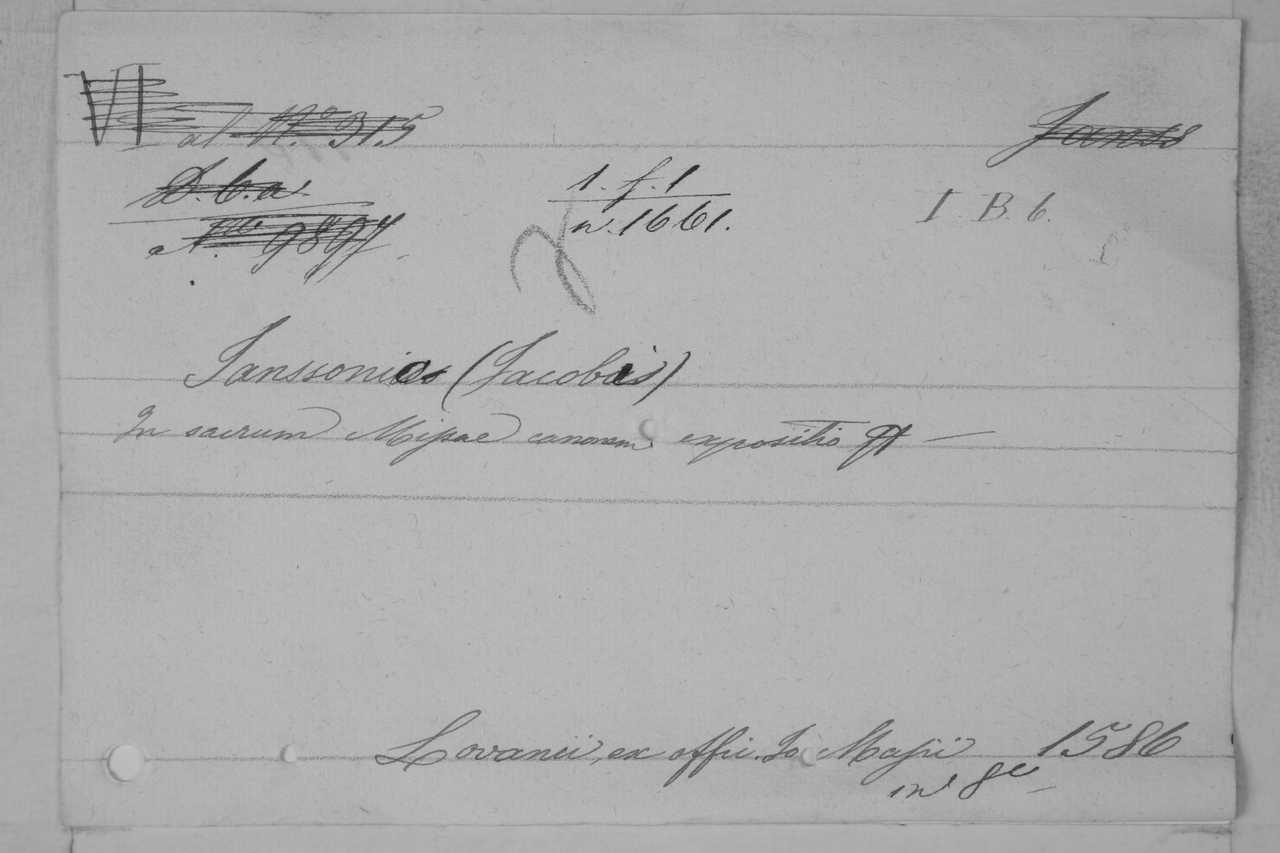 VI al N.º 315
Janss
D. b. a.
1. f. 1
n. 1661.
I B. b.
Nº 9897
Janssonius (Jacobus)
In sacrum Missae canonem expositio
Lovanii, ex offic. Jo Masii 1586
in 8º